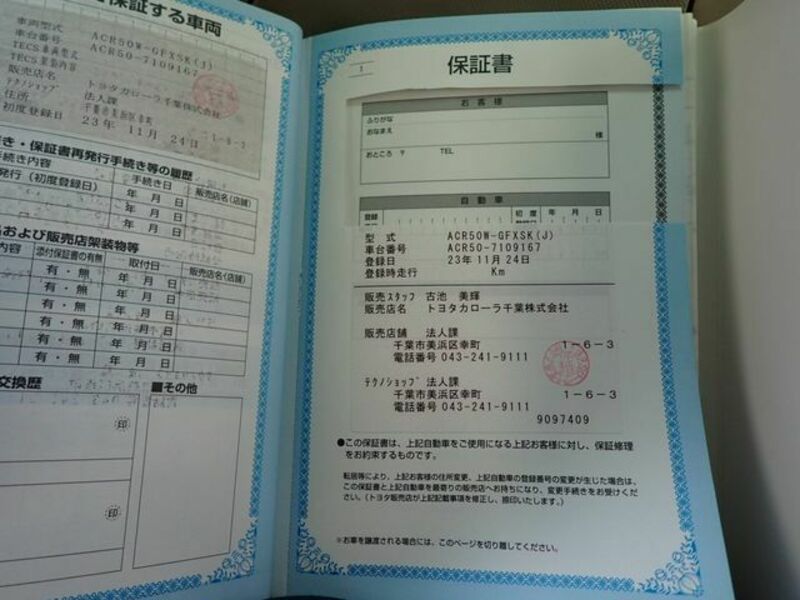 保証する車両
車両型式 ACR50W-GFXSK(J)
車台番号 ACR50-7109167
TECS車両型式
TECS架装内容
販売店名 トヨタカローラ千葉株式会社
テクノショップ 法人課
住所 千葉市美浜区幸町 1-6-3
初度登録日 23年 11月 24日
き・保証書再発行手続き等の履歴
手続き内容 手続き日 販売店名(店舗)
発行(初度登録日) 年 月 日
年 月 日
年 月 日
および販売店架装物等
内容 添付保証書の有無 取付日 販売店名(店舗)
有・無 年 月 日
有・無 年 月 日
有・無 年 月 日
有・無 年 月 日
有・無 年 月 日
交換歴
■その他
印
印
1
保証書
お客様
ふりがな
おなまえ 様
おところ 〒 TEL
自動車
登録 初度 年 月 日
型 式 ACR50W-GFXSK(J)
車台番号 ACR50-7109167
登録日 23年 11月 24日
登録時走行 Km
販売スタッフ 古池 美輝
販売店名 トヨタカローラ千葉株式会社
販売店舗 法人課
千葉市美浜区幸町 1-6-3
電話番号 043-241-9111
テクノショップ 法人課
千葉市美浜区幸町 1-6-3
電話番号 043-241-9111
9097409
●この保証書は、上記自動車をご使用になる上記お客様に対し、保証修理
をお約束するものです。
転居等により、上記お客様の住所変更、上記自動車の登録番号の変更が生じた場合は、
この保証書と上記自動車を最寄りの販売店へお持ちになり、変更手続きをお受けくだ
さい。(トヨタ販売店が上記記載事項を修正し、捺印いたします。)
※お車を譲渡される場合には、このページを切り離してください。